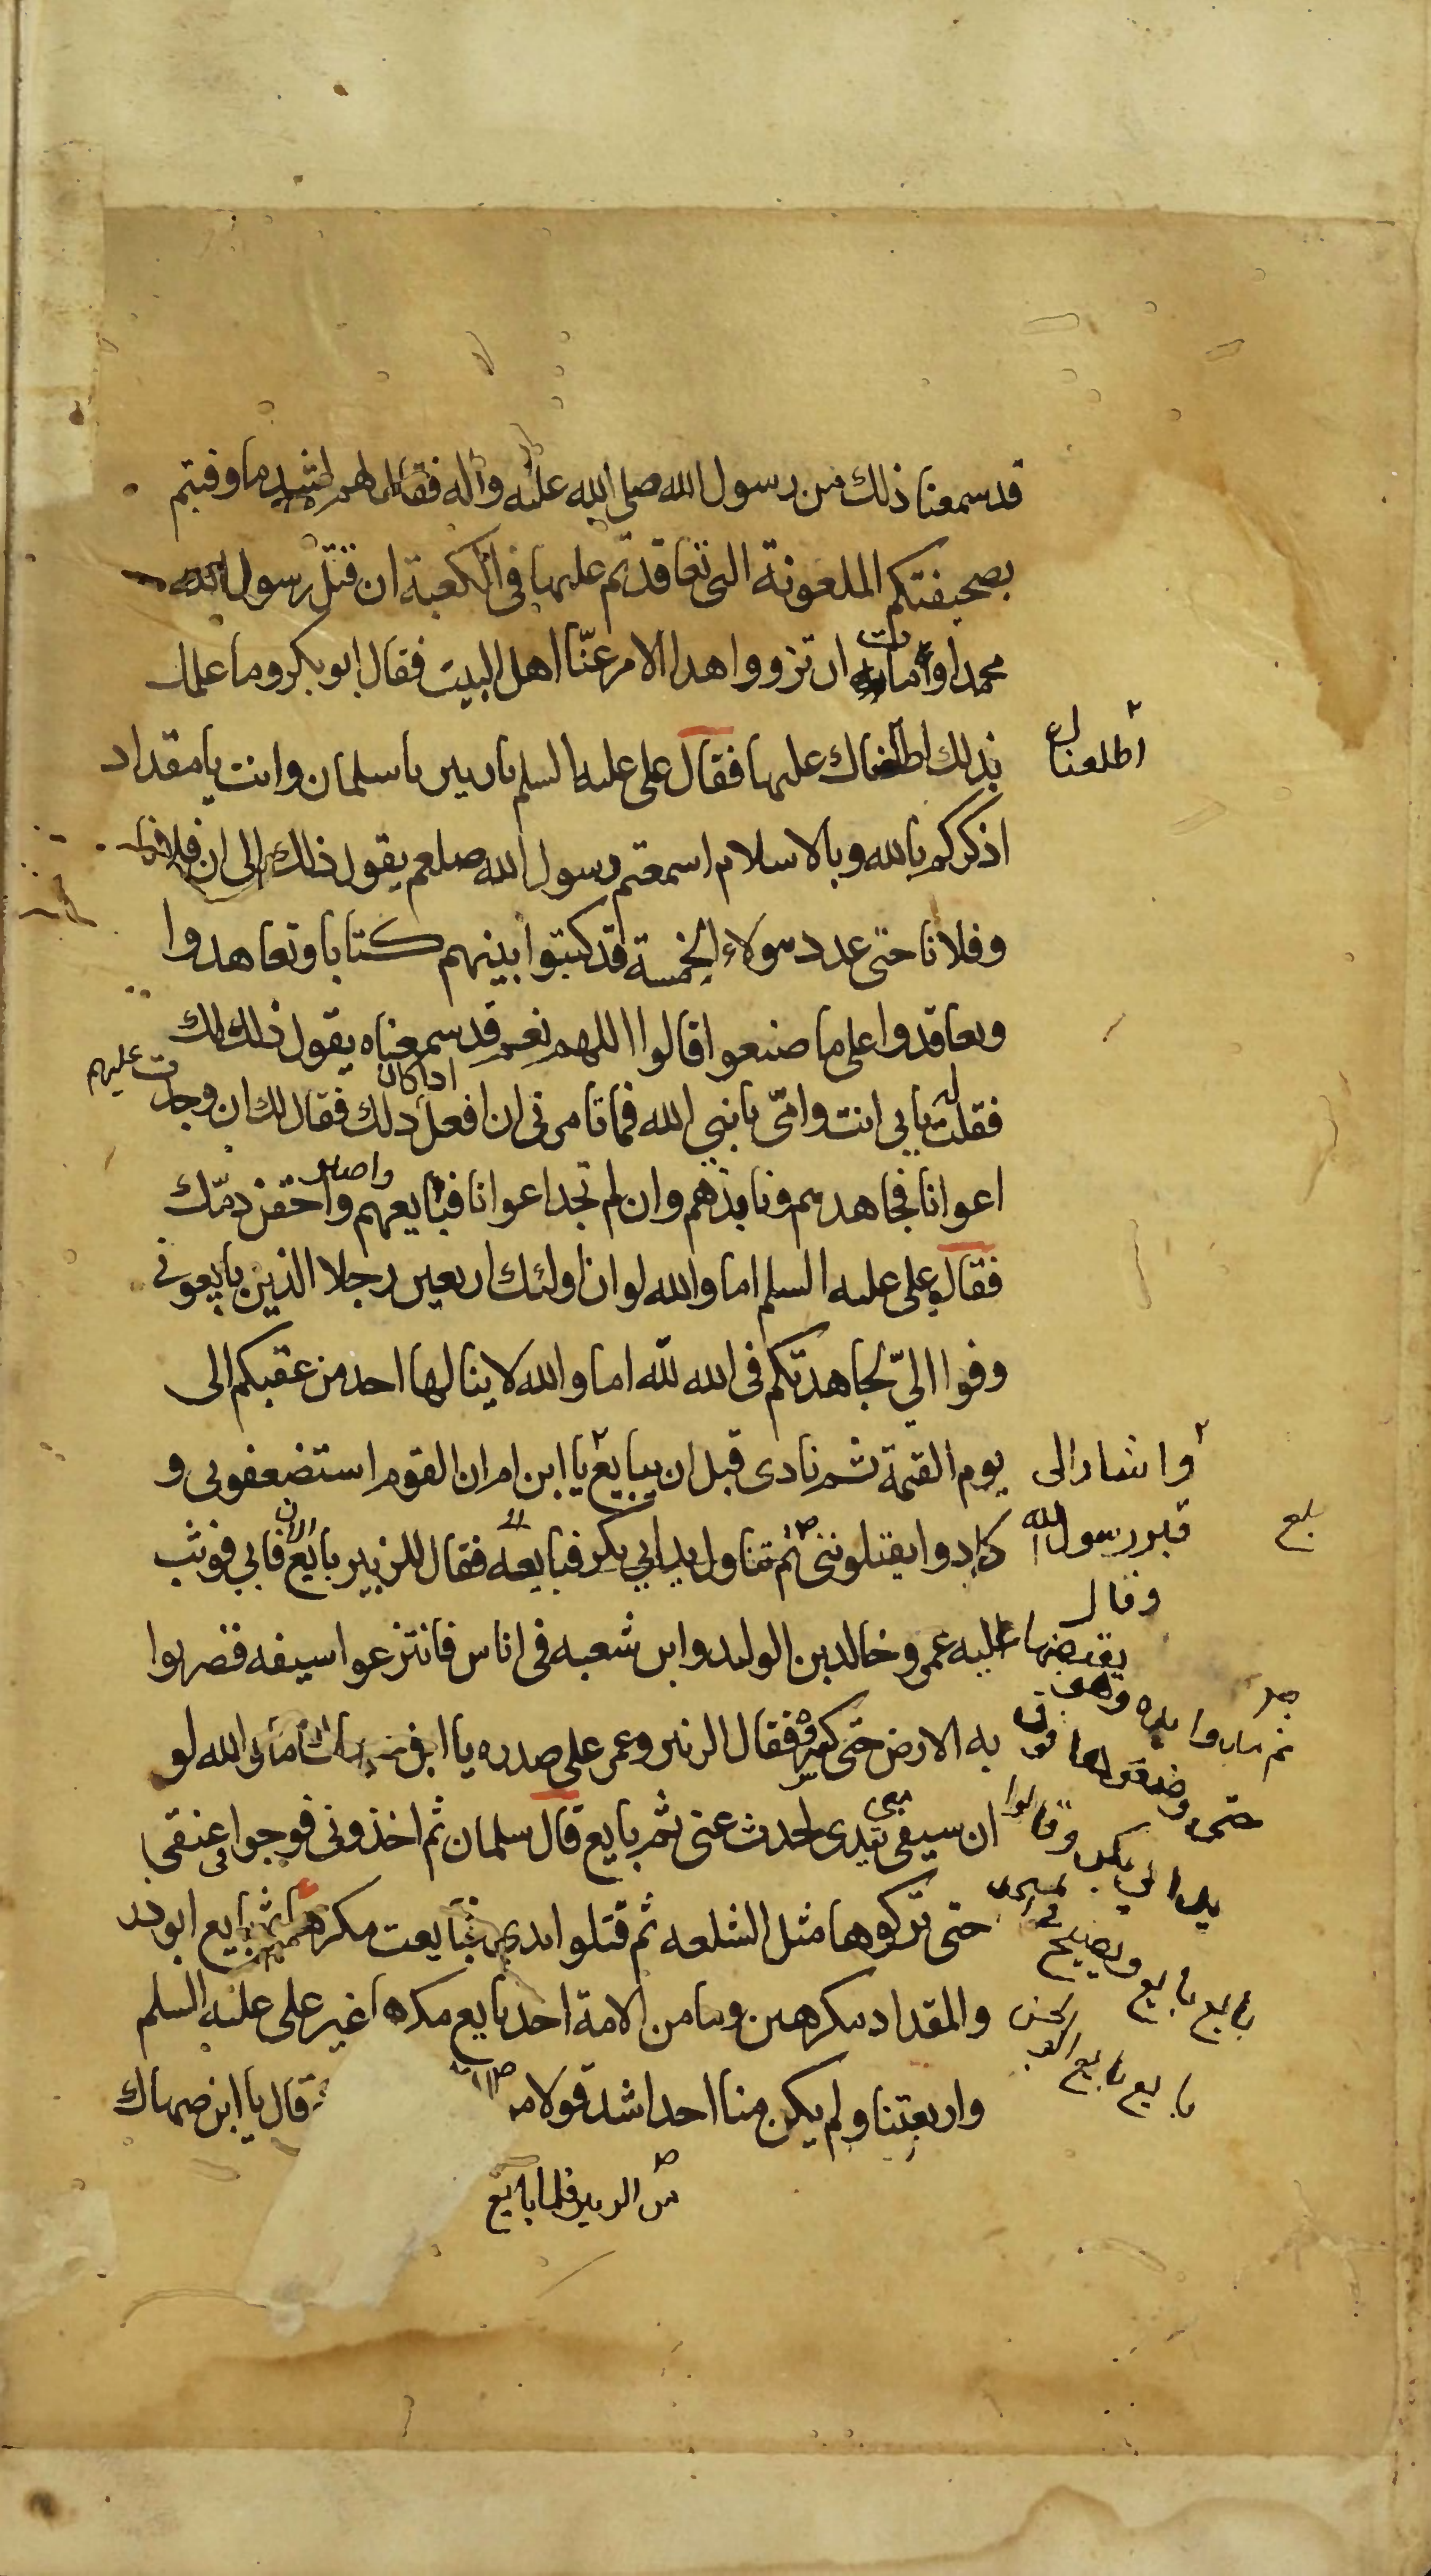 قد سمعنا ذلك من رسول الله صلى الله عليه واله فقال لهم لشد ما وفيتم
بصحيفتكم الملعونة التى تعاقدتم عليها فى الكعبة ان قتل رسول الله
محمدا او مات ان تزووا هذا الامر عنّا اهل البيت فقال ابو بكر وما علمك
بذلك اطلعناك عليها فقال على عليه السلم يا زبير يا سلمان وانت يا مقداد
أطلعناك
اذكركم بالله وبالاسلام اسمعتم رسول الله صلعم يقول ذلك الى ان فلانا
وفلانا حتى عدد هولاء الخمسة قد كتبوا بينهم كتابا وتعاهدوا
وتعاقدوا على ما صنعوا قالوا اللهم نعم قد سمعناه يقول ذلك لك
فقلت بابي انت وامّي يا نبي الله فما تامرنى ان افعل اذا كان ذلك فقال لك ان وجدت عليهم
اعوانا فجاهدهم ونابذهم وان لم تجد اعوانا فبايعهم واصبر واحقن دمّك
فقال على عليه السلم اما والله لو ان اولئك اربعين رجلا الذين بايعونى
وفوا اليّ لجاهدتكم فى الله لله اما والله لا ينالها احد من عقبكم الى
يوم القيمة ثم نادى قبل ان يبايع يا ابن ام ان القوم استضعفونى و
واشار الى
قبر رسول الله
وقال
بلغ
كادوا يقتلوننى ثم تناول يد ابي بكر فبايعه فقال للزبير بايع الان فابى فوثب
عليه عمر وخالد بن الوليد وابن شعبه فى اناس فانتزعوا سيفه فضربوا
به الارض حتى كسر فقال الزبير وعمر على صدره يا ابن صهاك اما والله لو
ان سيفى بيدى لحدث عنى ثم بايع قال سلمان ثم اخذونى فوجوا عنقى
حتى تركوها مثل السلعه ثم قتلوا يدى فبايعت مكرها ثم بايع ابو ذر
والمقداد مكرهين وما من الامة احد بايع مكرها غير على عليه السلم
واربعتنا ولم يكن منا احد اشد قولا قال يا ابن صهاك
من الزبير فلما بايع
يقبضها
حتى وضعوها فوق
يد ابي بكر وقالوا
بايع بايع ويصيح
بايع بايع ابو الحسن